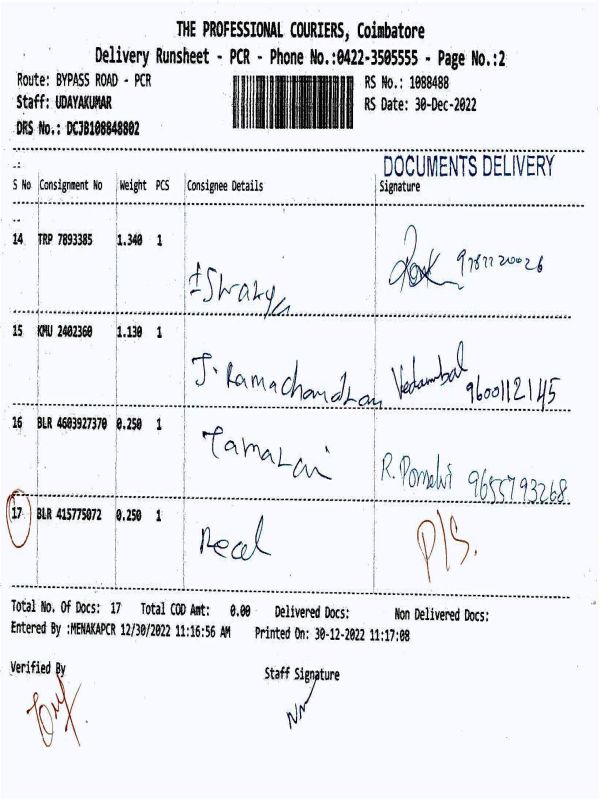 THE PROFESSIONAL COURIERS, Coimbatore
Delivery Runsheet - PCR - Phone No.:0422-3505555 - Page No.:2
Route: BYPASS ROAD - PCR RS No.: 1088488
Staff: UDAYAKUMAR RS Date: 30-Dec-2022
DRS No.: DCJB108848802
DOCUMENTS DELIVERY
S No Consignment No Weight PCS Consignee Details Signature
14 TRP 7893385 1.340 1
15 KMU 2402360 1.130 1
J. Ramachandran Vedambal 9600112145
16 BLR 4603927370 0.250 1
R. 9655793268
17 BLR 415775072 0.250 1
P/S.
Total No. Of Docs: 17 Total COD Amt: 0.00 Delivered Docs: Non Delivered Docs:
Entered By :MENAKAPCR 12/30/2022 11:16:56 AM Printed On: 30-12-2022 11:17:08
Verified By Staff Signature